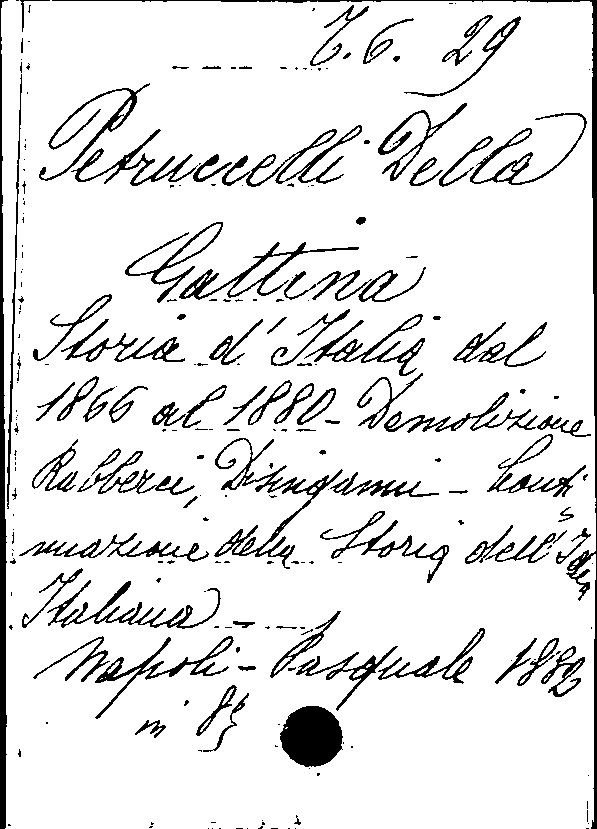 7.6. 29
Petruccelli Della
Gattina
Storia d'Italia dal
1866 al 1880 - Demolizione
Rabberci, Disinganni - Conti
nuazione della Storia dell'Idea
Italiana -
Napoli - Pasquale 1882
in 8º